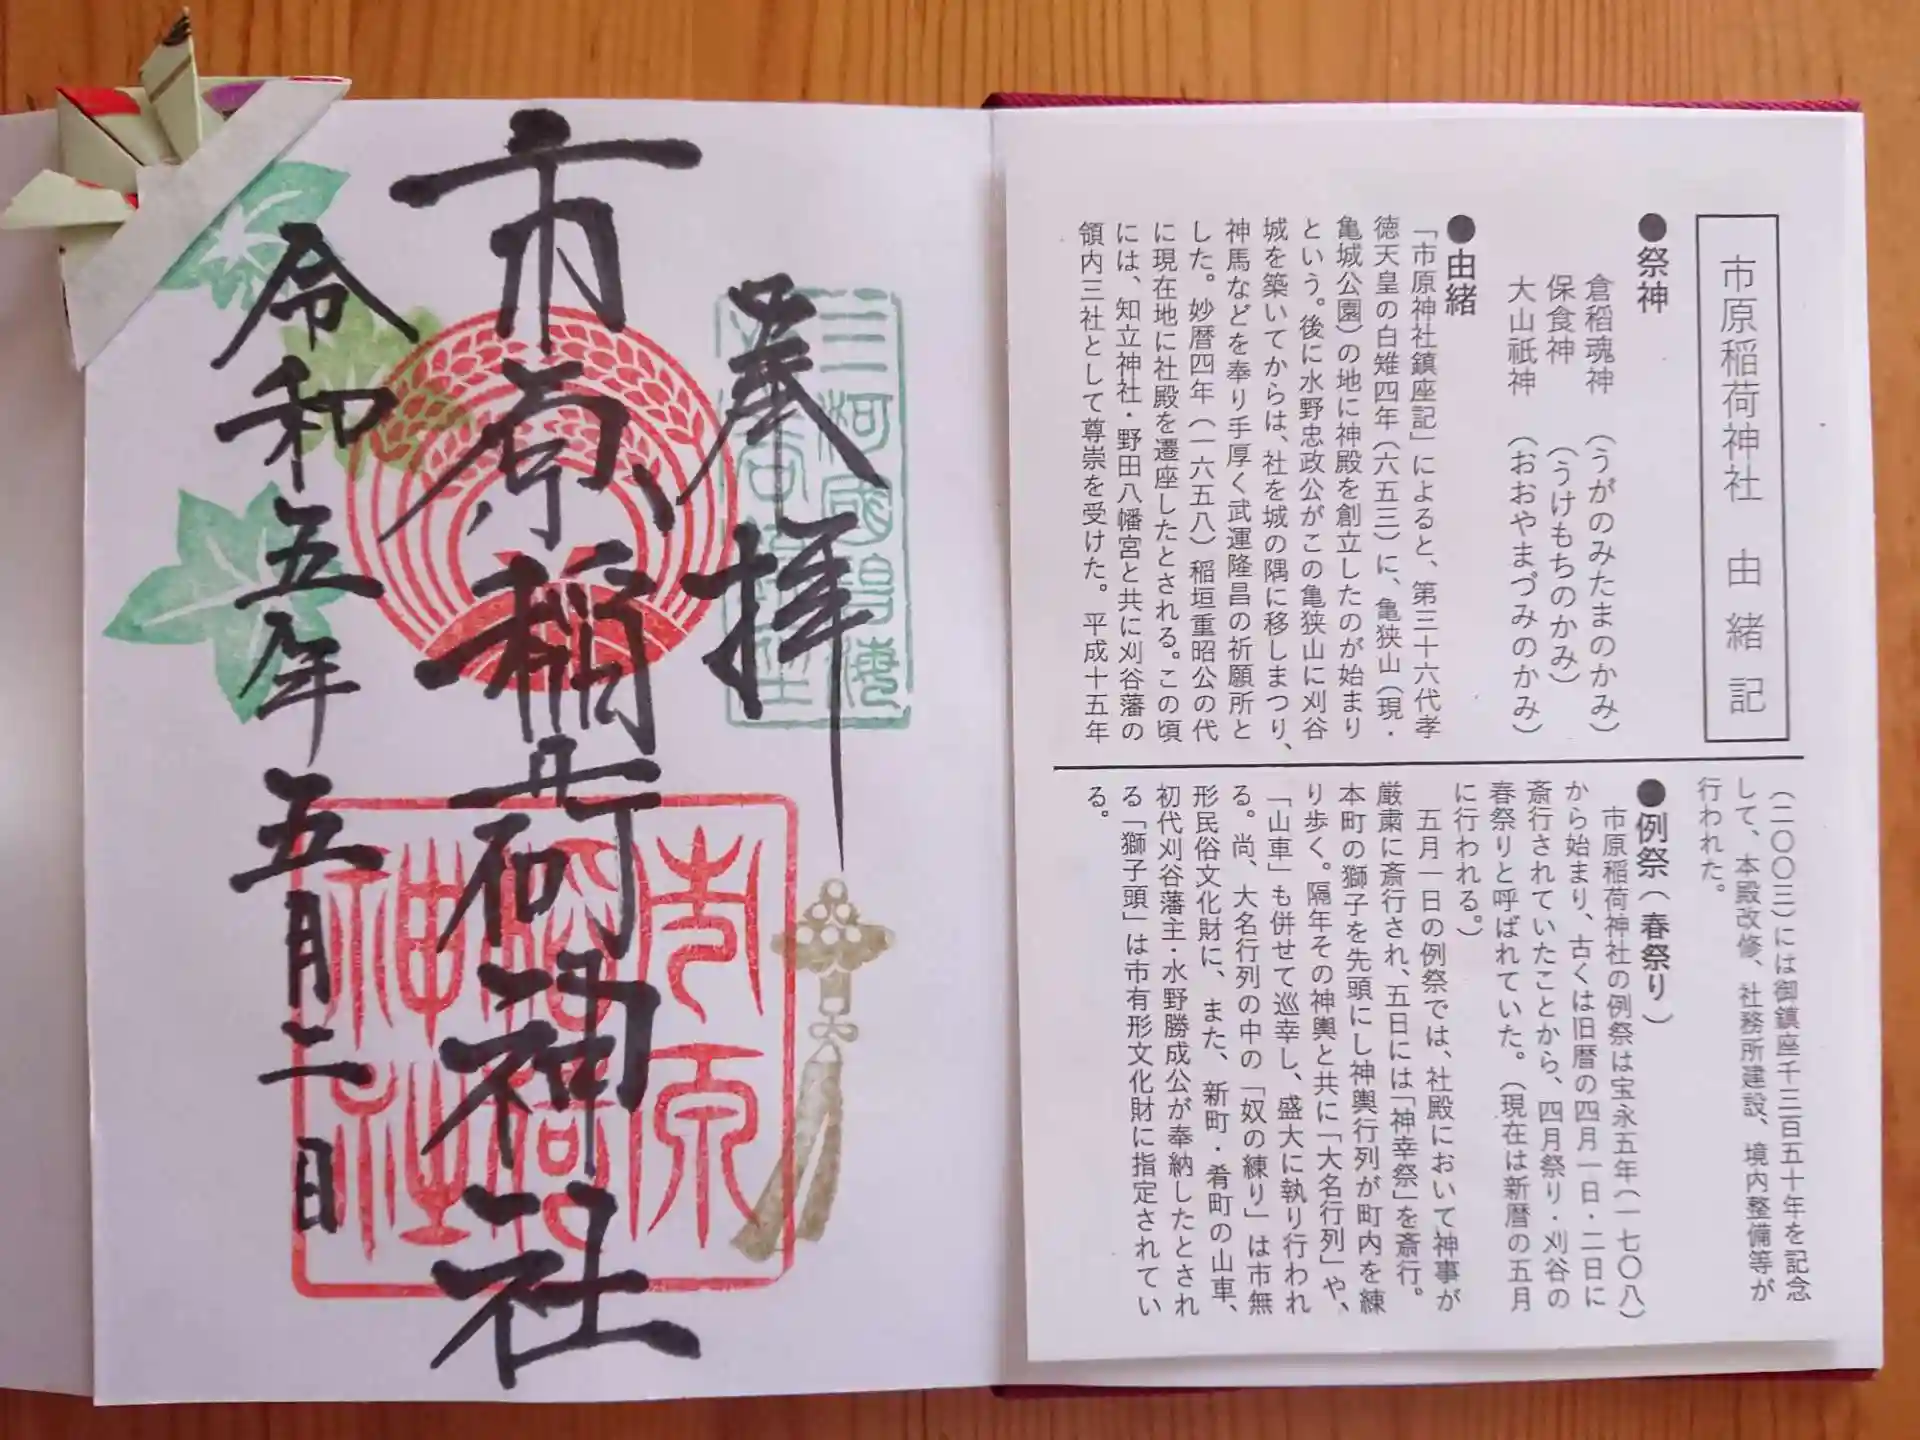 市原稲荷神社 由緒記
●祭神
倉稲魂神 (うがのみたまのかみ)
保食神 (うけもちのかみ)
大山祇神 (おおやまづみのかみ)
●由緒
「市原神社鎮座記」によると、第三十六代孝
徳天皇の白雉四年(六五三)に、亀狭山(現・
亀城公園)の地に神殿を創立したのが始まり
という。後に水野忠政公がこの亀狭山に刈谷
城を築いてからは、社を城の隅に移しまつり、
神馬などを奉り手厚く武運隆昌の祈願所と
した。妙暦四年(一六五八)稲垣重昭公の代
に現在地に社殿を遷座したとされる。この頃
には、知立神社・野田八幡宮と共に刈谷藩の
領内三社として尊崇を受けた。平成十五年
(二〇〇三)には御鎮座千三百五十年を記念
して、本殿改修、社務所建設、境内整備等が
行われた。
●例祭(春祭り)
市原稲荷神社の例祭は宝永五年(一七〇八)
から始まり、古くは旧暦の四月一日・二日に
斎行されていたことから、四月祭り・刈谷の
春祭りと呼ばれていた。(現在は新暦の五月
に行われる。)
五月一日の例祭では、社殿において神事が
厳粛に斎行され、五日には「神幸祭」を斎行。
本町の獅子を先頭にし神輿行列が町内を練
り歩く。隔年その神輿と共に「大名行列」や、
「山車」も併せて巡幸し、盛大に執り行われ
る。尚、大名行列の中の「奴の練り」は市無
形民俗文化財に、また、新町・肴町の山車、
初代刈谷藩主・水野勝成公が奉納したとされ
る「獅子頭」は市有形文化財に指定されてい
る。
奉拝
市原稲荷神社
令和五年五月二日
市原
稲荷
神社